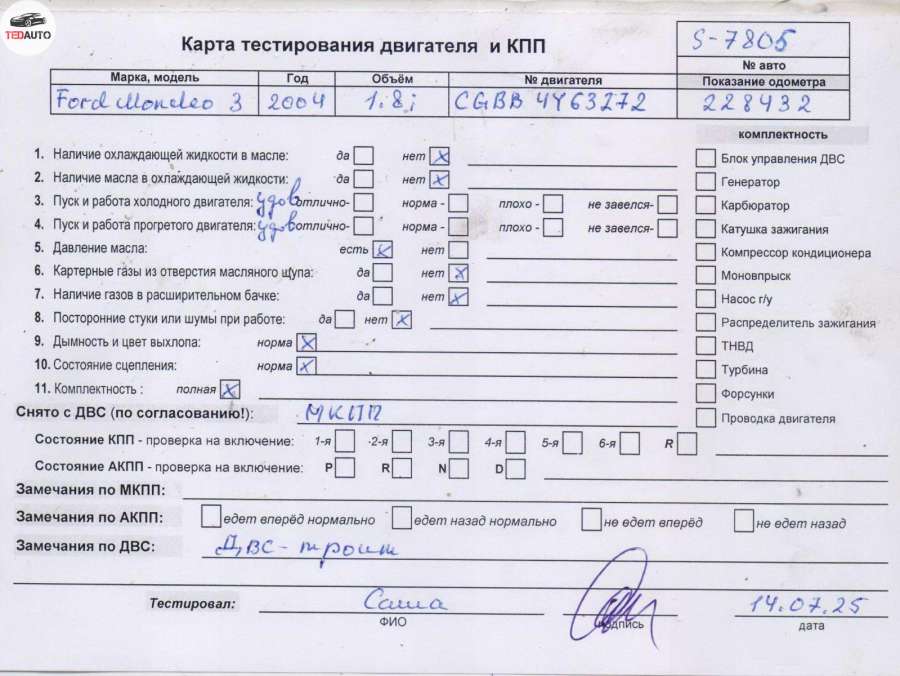 TEDAUTO
Карта тестирования двигателя и КПП
S-7805
№ авто
Марка, модель Год Объём № двигателя Показание одометра
Ford Mondeo 3 2004 1.8i CGBB 4Y63272 228432
комплектность
1. Наличие охлаждающей жидкости в масле: да нет x
Блок управления ДВС
2. Наличие масла в охлаждающей жидкости: да нет x
Генератор
3. Пуск и работа холодного двигателя: удов отлично- норма - плохо - не завелся-
Карбюратор
4. Пуск и работа прогретого двигателя: удов отлично- норма - плохо - не завелся-
Катушка зажигания
5. Давление масла: есть x нет
Компрессор кондиционера
6. Картерные газы из отверстия масляного щупа: да нет x
Моновпрыск
7. Наличие газов в расширительном бачке: да нет x
Насос г/у
8. Посторонние стуки или шумы при работе: да нет x
Распределитель зажигания
9. Дымность и цвет выхлопа: норма x
ТНВД
10. Состояние сцепления: норма x
Турбина
11. Комплектность : полная x
Форсунки
Снято с ДВС (по согласованию!): МКПП
Проводка двигателя
Состояние КПП - проверка на включение: 1-я 2-я 3-я 4-я 5-я 6-я R
Состояние АКПП - проверка на включение: P R N D
Замечания по МКПП:
Замечания по АКПП: едет вперёд нормально едет назад нормально не едет вперёд не едет назад
Замечания по ДВС: ДВС - троит
Тестировал: Саша 14.07.25
ФИО подпись дата